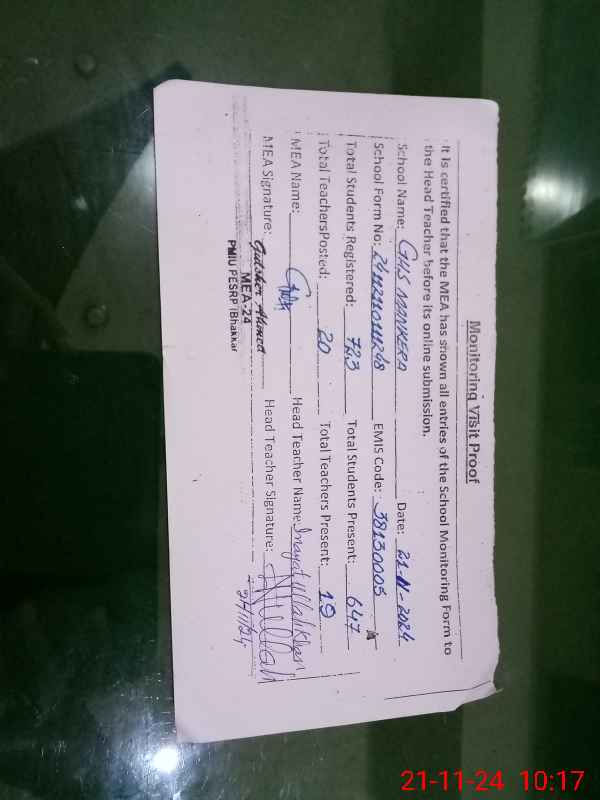 Monitoring Visit Proof
It is certified that the MEA has shown all entries of the School Monitoring Form to
the Head Teacher before its online submission.
School Name: GHS MANKERA Date: 21-11-2024
School Form No: EMIS Code: 38130005
Total Students Registered: 723 Total Students Present: 647
Total TeachersPosted: 20 Total Teachers Present: 19
MEA Name: Head Teacher Name Inayat Ullah Khan
MEA Signature: Gulsher Ahmed Head Teacher Signature:
MEA-24
PMIU PESRP Bhakkar
21/11/24
21-11-24 10:17